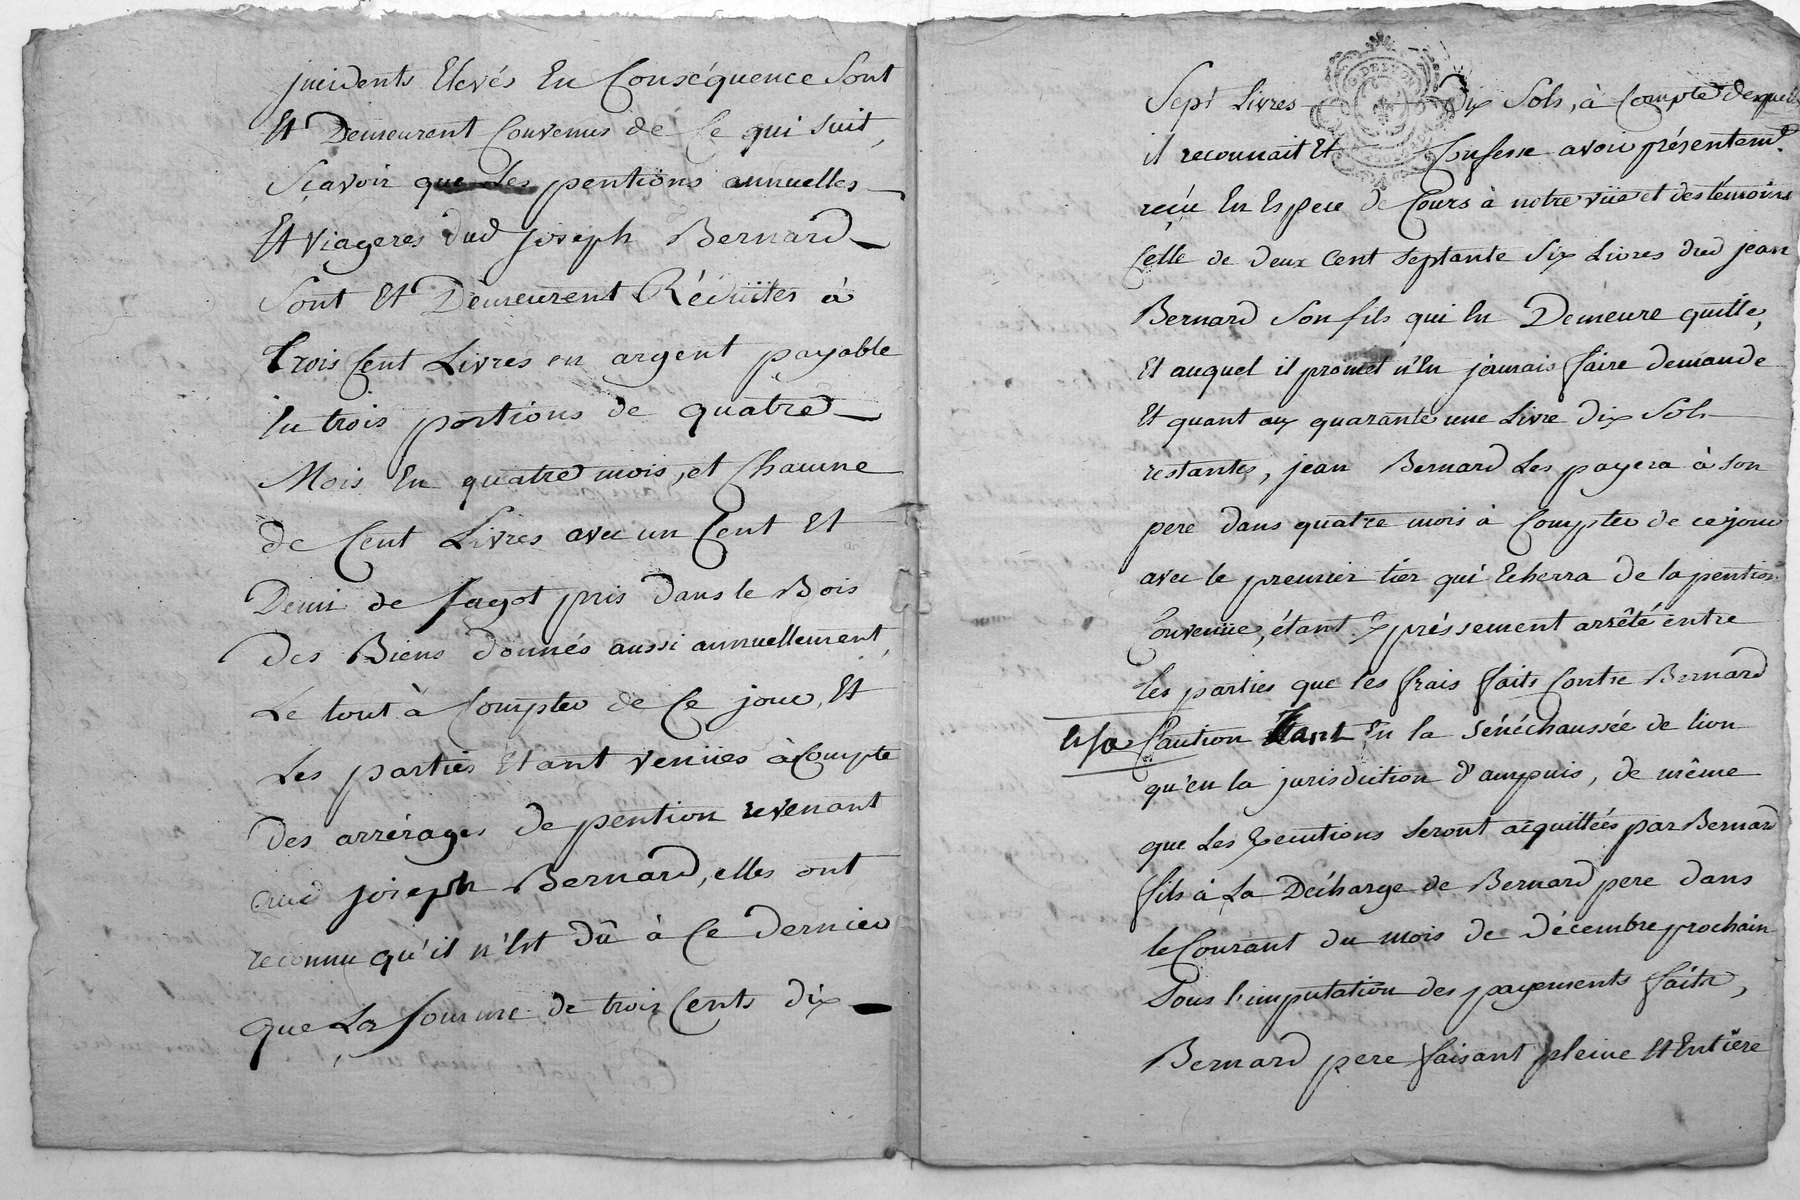 jncidents Elevés En Conséquence Sont
Et Demeurent Convenus de Ce qui suit,
Sçavoir que les pentions annuelles
Et viageres dud Joseph Bernard
Sont Et Demeurent Réduittes à
trois Cent Livres en argent payable
En trois portions de quatre
Mois En quatre mois, et Chacune
de Cent Livres avec un Cent Et
Demi de fagot pris dans le Bois
Des Biens donnés aussi annuellement,
Le tout à Compter de Ce jour, Et
Les parties Etant venües à Compte
Des arrérages de pention revenant
aud Joseph Bernard, elles ont
reconnu qu'il n'Est dû à Ce dernier
que La Somme de trois Cents dix
Sept Livres Dix Sols, à Compte desquelles
il reconnait Et Confesse avoir présentemt.
reçu En Espece de Cours à notre vüe et des temoins
Celle de deux Cent Septante Six Livres dud jean
Bernard Son fils qui En Demeure quitte,
Et auquel il promet n'En jamais faire demande
Et quant aux quarante une Livre dix Sols
restantes, jean Bernard Les payera à son
pere dans quatre mois à Compter de ce jour
avec le premier tier qui Echerra de la pention
Convenüe, étant Expréssement arrêté entre
les parties que les frais faits Contre Bernard
Et sa Caution tant En la Sénéchaussée de lion
qu'en la jurisdiction d'ampuis, de même
que Les Executions Seront acquittées par Bernard
fils à La Décharge de Bernard pere dans
le Courant du mois de décembre prochain
Sous l'imputation des payements faits,
Bernard pere faisant pleine Et Entiere